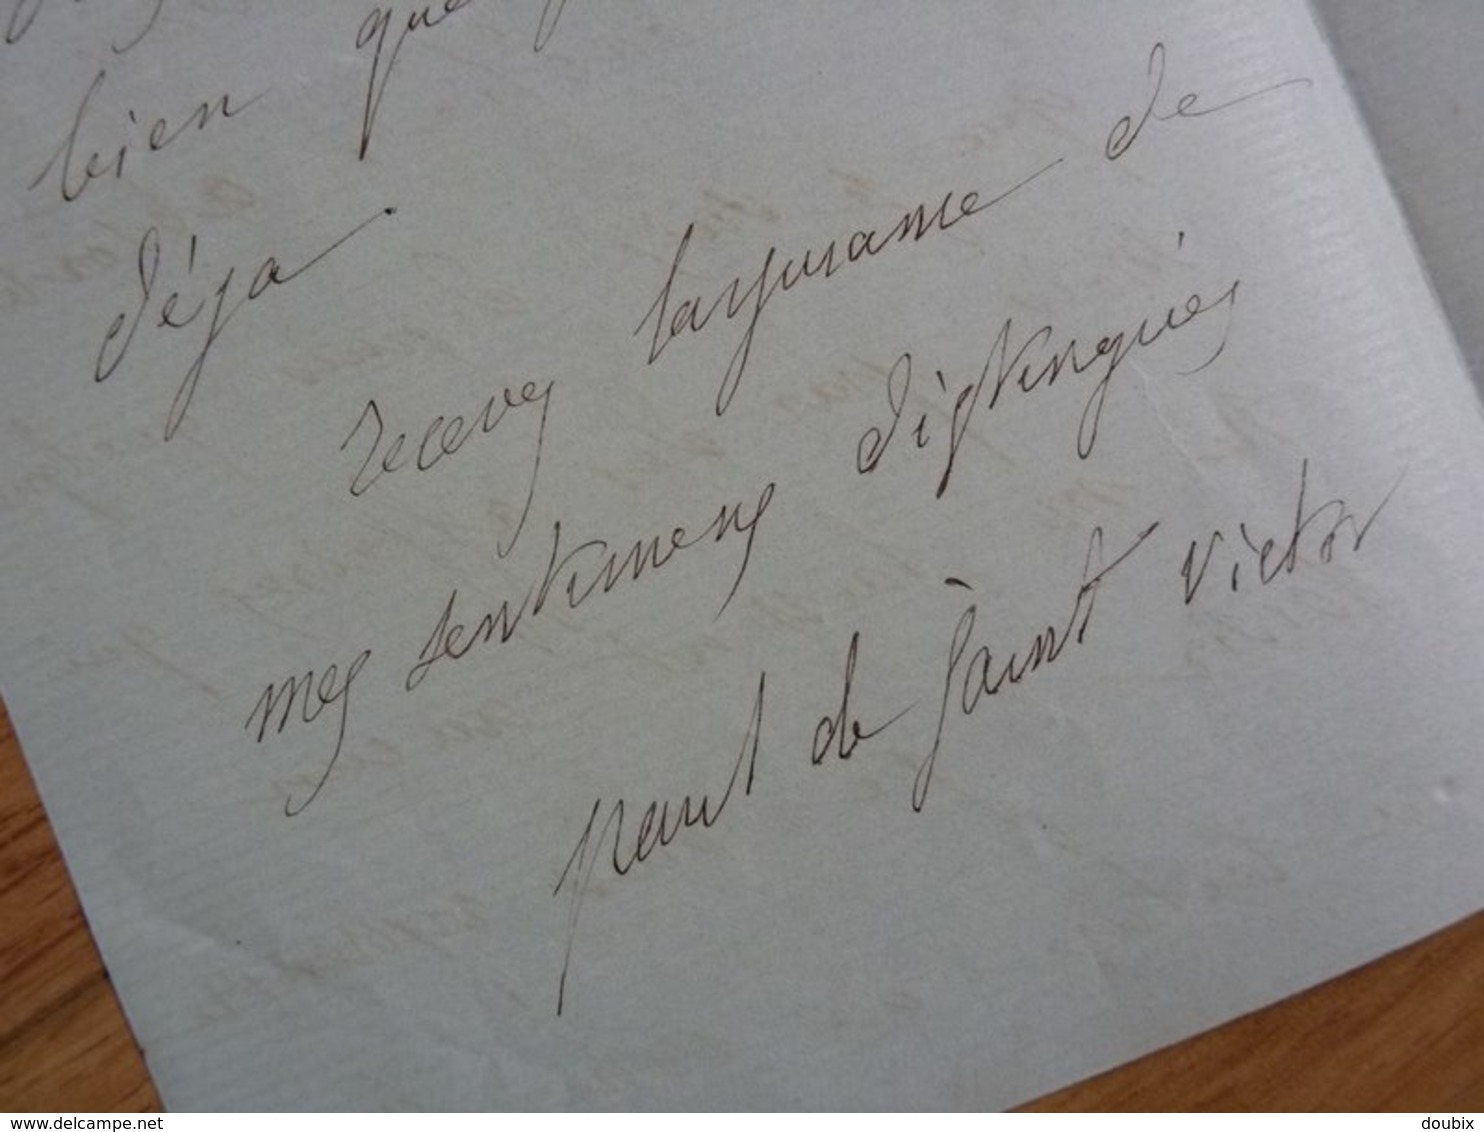 bien que
déja
recevez lassurance de
mes sentimens distingués
paul de Saint victor
www.delcampe.net
doubix